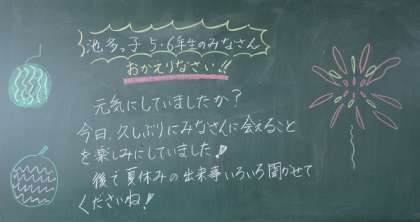 池多っ子5・6年生のみなさん
おかえりなさい!!
元気にしていましたか?
今日、久しぶりにみなさんに会えること
を楽しみにしていました!
後で夏休みの出来事いろいろ聞かせて
くださいね!